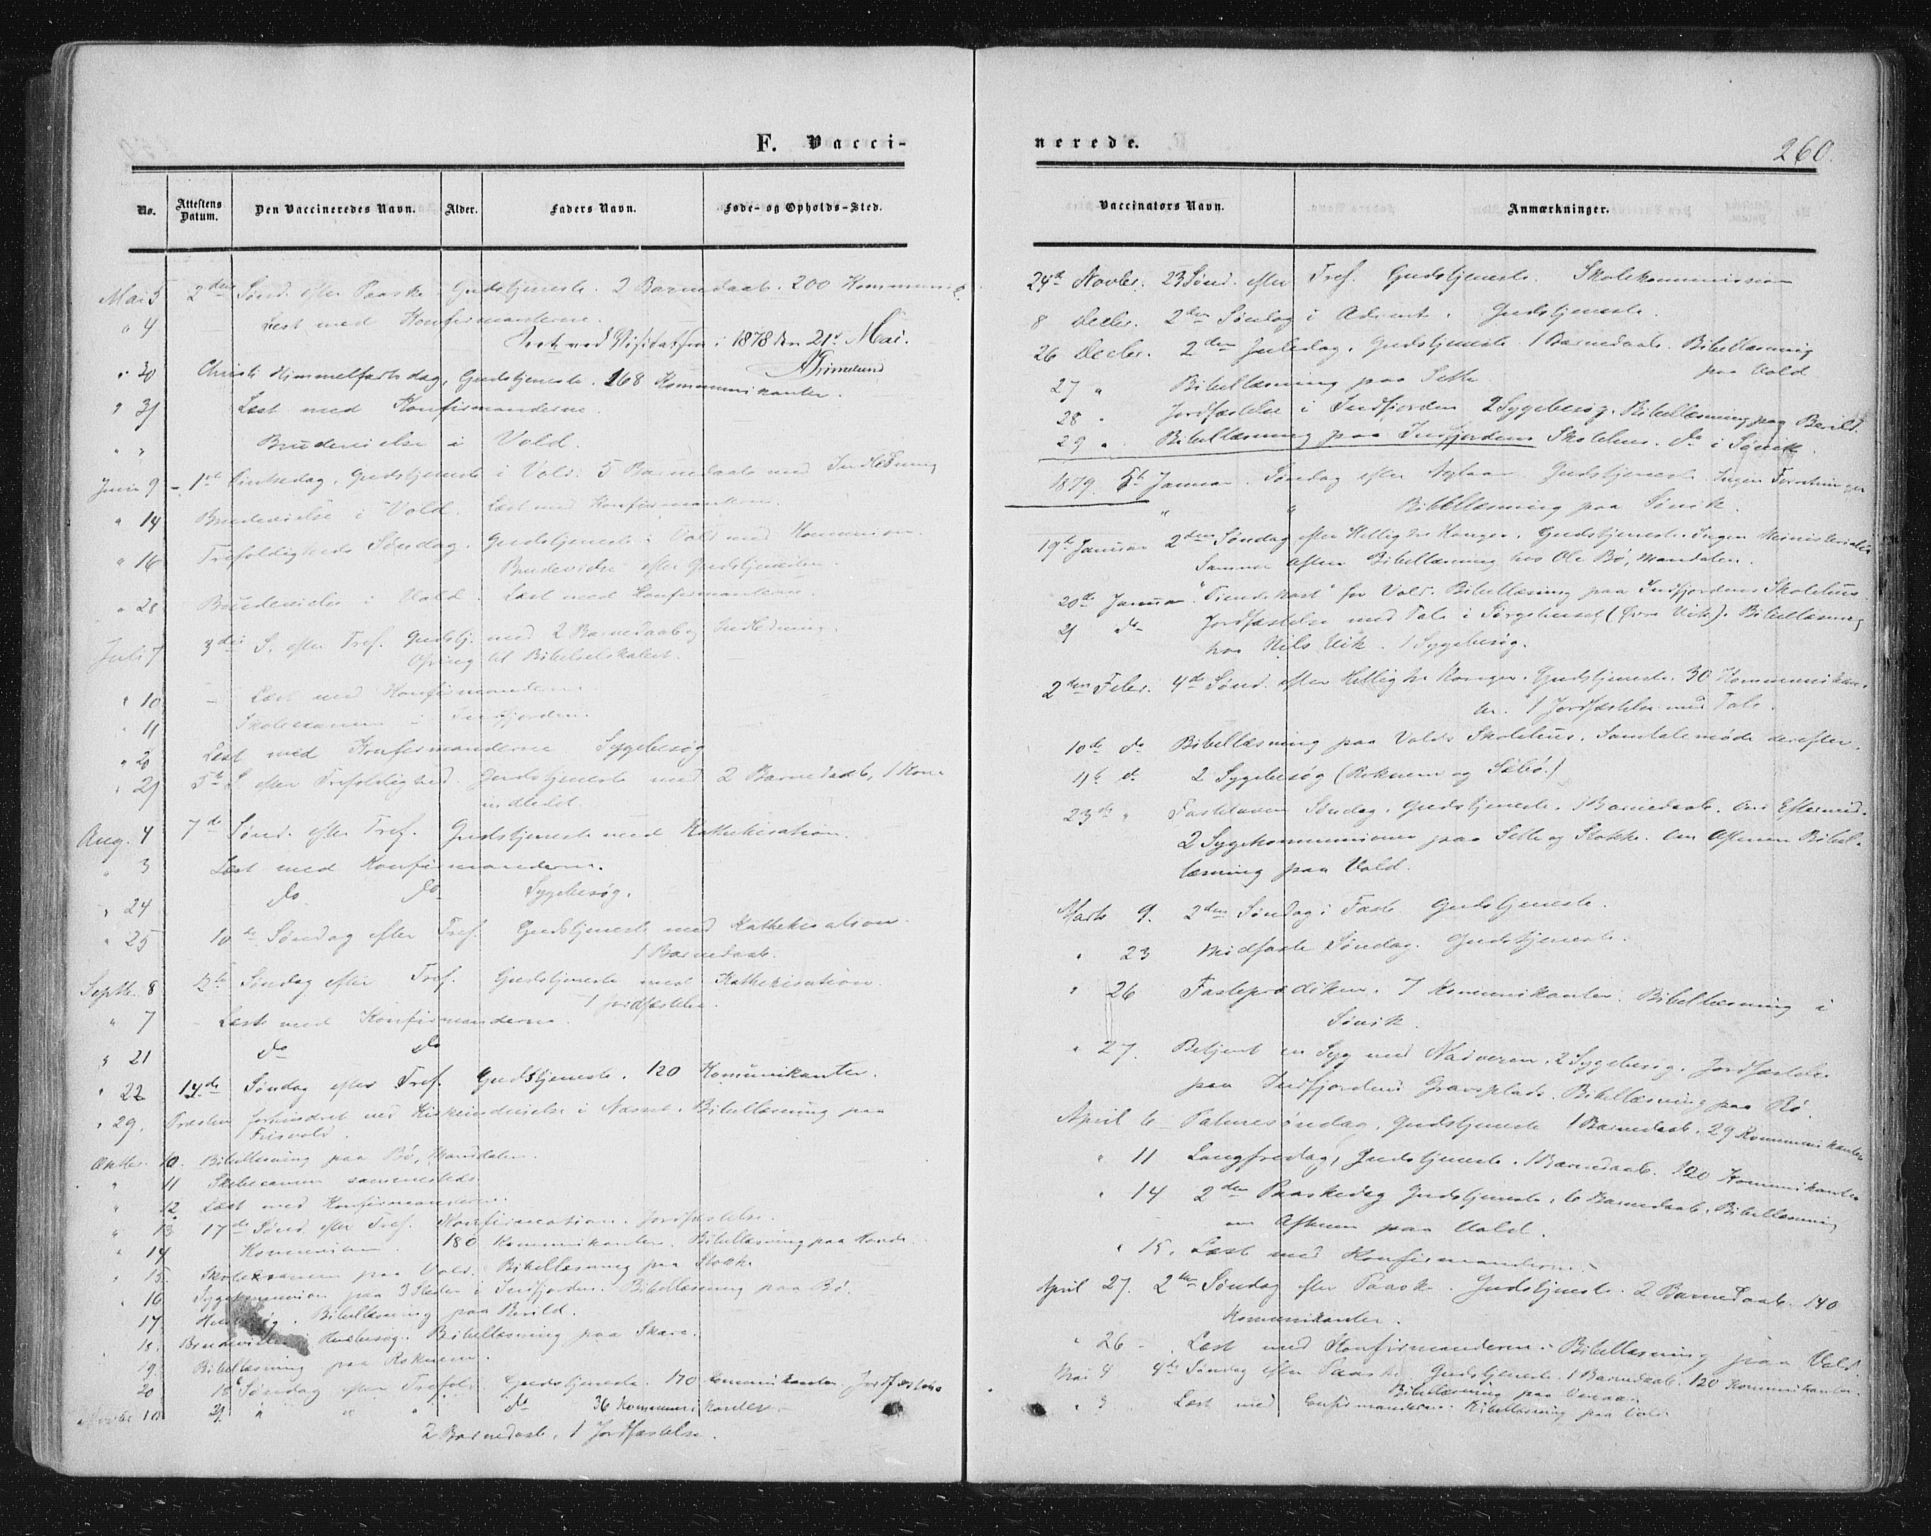 F. Vacci-
No.
Attestens Datum.
Den Vaccineredes Navn.
Alder.
Faders Navn.
Føde- og Opholds-Sted.
Mai 5 2den Sønd. efter Paaske. Gudstjeneste. 2 Barnedaab. 200 Kommunik.
" 4 Læst med Konfirmanterne.
Seet ved Visitatsen i 1878 den 21d Mai.
Grimelund
" 30 Christi Himmelfartsdag, Gudstjeneste. 168 Kommunikanter.
" 31 Læst med Konfirmanderne.
" " Brudevielse i Vold.
Juni 9 1ste Pintsedag, Gudstjeneste i Vold. 5 Barnedaab med Indledning
" 14 Brudevielse i Vold. Læst med Konfirmanterne.
" 16 Trefoldigheds Søndag. Gudstjeneste i Vold med Kommunion.
Brudevielse efter Gudstjenesten.
" 28 Brudevielse i Vold. Læst med Konfirmanterne.
Juli 7 3die S. efter Tref. Gudstj. med 2 Barnedaab og Indledning.
Ofring til Bibelselskabet.
" 10 Læst med Konfirmanderne
" 11 Skoleexamen i Indfjorden.
" 20 Læst med Konfirmanderne Sygebesøg
" 21 5te S. efter Trefoldighed. Gudstjeneste med 2 Barnedaab, 1 Kone
indledet.
Aug. 4 7de Sønd. efter Tref. Gudstjeneste med Kathekisation.
" 3 Læst med Konfirmanderne.
" 24 do do Sygebesøg.
" 25 10de Søndag efter Tref. Gudstjeneste med Kathekisation.
1 Barnedaab.
Septbr. 8 12te Søndag efter Tref. Gudstjeneste med Kathekisation.
1 jordfæstelse.
" 7 Læst med Konfirmanderne.
" 21 do do
" 22 14de Søndag efter Tref. Gudstjeneste. 120 Kommunikanter.
" 29. Præsten forhindret ved Kirkeindvielse i Nasset. Bibellæsning paa
Frisvold.
Oktbr. 10. Bibellæsning paa Bø, Manddalen.
" 11 Skoleexamen sammesteds.
" 12 Læst med Konfirmanderne.
" 13 17de Sønd. efter Tref. Konfirmation. Jordfæstelse.
" 14 Kommunion. 180 Kommunikanter. Bibellæsning paa
" 15. Skoleexamen paa Vold. Bibellæsning paa Stokke
" 16 Sygekommunion paa 3 Steder i Indfjorden. Bibellæsning paa Bø.
17. Bibellæsning paa Berild.
18. Brudevielse. Husbesøg. Bibellæsning paa Skare.
19. Bibellæsning paa Roknem.
20 18de Søndag efter Trefold. Gudstjeneste. 170 Kommunikanter Jordfæstelse
Novbr 10 21 " " " do 36 Kommunikanter
2 Barnedaab. 1 Jordfæstelse.
nerede.
260.
Vaccinators Navn.
Anmærkninger.
24de Novbr. 23 Sønd. efter Tref. Gudstjeneste. Skolekommission
8 Decbr. 2den Søndag i Advent. Gudstjeneste.
26 Decbr. 2den Juledag. Gudstjeneste. 1 Barnedaab. Bibellæsning
paa Vold
27 " Bibellæsning paa Sette.
28 " Jordfæstelse i Indfjorden 2 Sygebesøg. Bibellæsning paa Berild.
29 " Bibellæsning paa Indfjordens Skolehus. do i Søvik.
1879. 5te Januar. Søndag efter Nytaar. Gudstjeneste. Ingen Forretninger
" " Bibellæsning paa Søvik.
19de Januar 2den Søndag efter Hellig tre Konger. Gudstjeneste. Ingen Ministerialia
Samme Aften Bibellæsning hos Ole Bø, Mandalen.
20de Januar "Tiendekast" for Vold. Bibellæsning paa Indfjordens Skolehus.
21 do Jordfæstelse med Tale i Sørgehuset (Øvre Vik). Bibellæsning
hos Nils Vik. 1 Sygebesøg.
2den Febr. 4de Sønd. efter Hellig tre Konger. Gudstjeneste. 30 Kommunikan-
ter. 1 Jordfæstelse med Tale.
10de do Bibellæsning paa Volds Skolehus. Samtalemøde derefter.
11te do 2 Sygebesøg (Roknem og Søbø.)
23de " Fastelavns Søndag. Gudstjeneste. 1 Barnedaab. Om Eftermid.
2 Sygekommunioner paa Sette og Stokke. Om Aftenen Bibel-
læsning paa Vold.
Marts 9. 2den Søndag i Faste. Gudstjeneste.
" 23 Midfaste Søndag. Gudstjeneste.
" 26 Fasteprædiken. 7 Kommunikanter. Bibellæsning i
Søvik.
" 27. Betjent en Syg med Nadveren. 2 Sygebesøg. Jordfæstelse
paa Indfjordens Gravplads. Bibellæsning paa Bø.
April 6 Palmesøndag. Gudstjeneste 1 Barnedaab. 29 Kommunikanter
" 11 Langfredag, Gudstjeneste. 1 Barnedaab. 120 Kommunikanter
" 14 2den Paaskedag Gudstjeneste. 6 Barnedaab. Bibellæsning
om Aftenen paa Vold.
" 15. Læst med Konfirmanderne.
April 27. 2den Søndag efter Paaske. Gudstjeneste. 2 Barnedaab. 140
Kommunikanter.
" 26 Læst med Konfirmanderne. Bibellæsning paa Vold.
Mai 4 4de Søndag efter Paaske Gudstjeneste. 1 Barnedaab. 120 Kommunikanter.
Bibellæsning paa
" 3 Læst med Confirmanderne. Bibellæsning paa Vold.